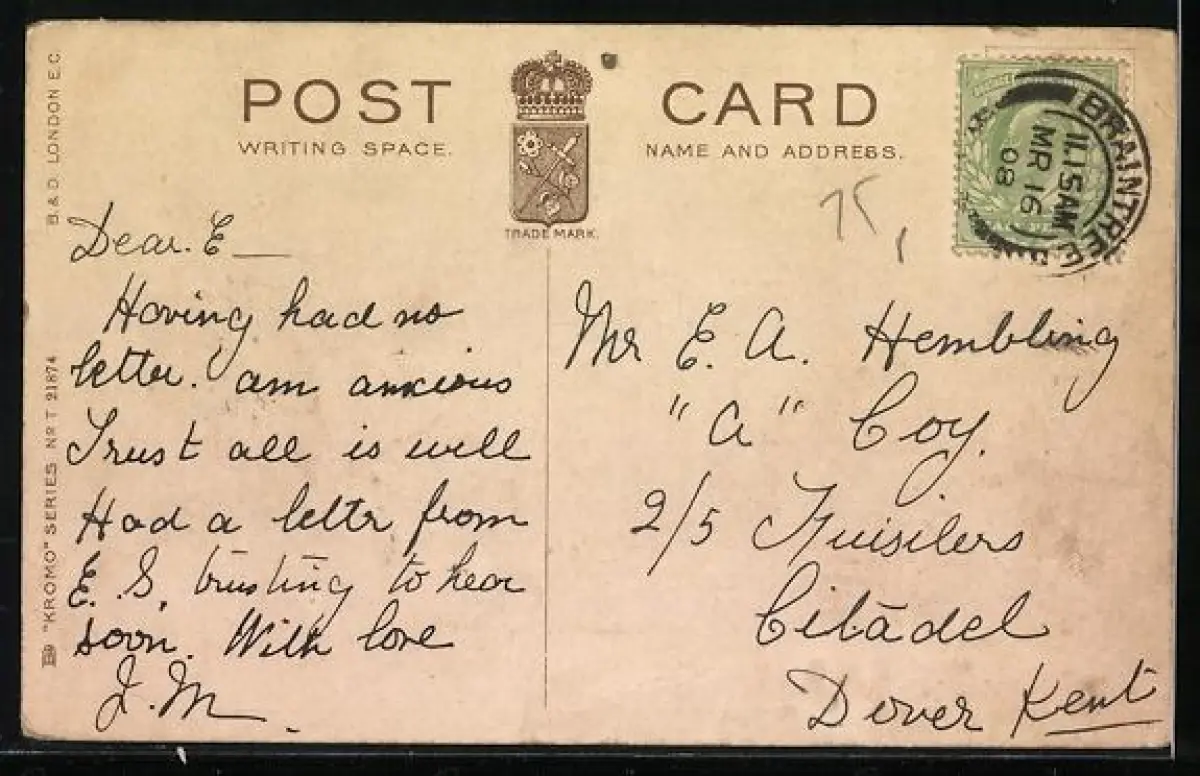 POST CARD
WRITING SPACE.
NAME AND ADDRESS.
TRADE MARK.
B & D. LONDON E.C.
"KROMO" SERIES Nr T 21874
BRAINTREE
11.15AM
MR 16
08
75
Dear. E —
Having had no
letter. am anxious
Trust all is will
Had a lettr from
E. S. trusting to hear
soon. With love
J. M.
Mr E. A. Hembling
"A" Coy.
2/5 Fuisilers
Citadel
Dover Kent